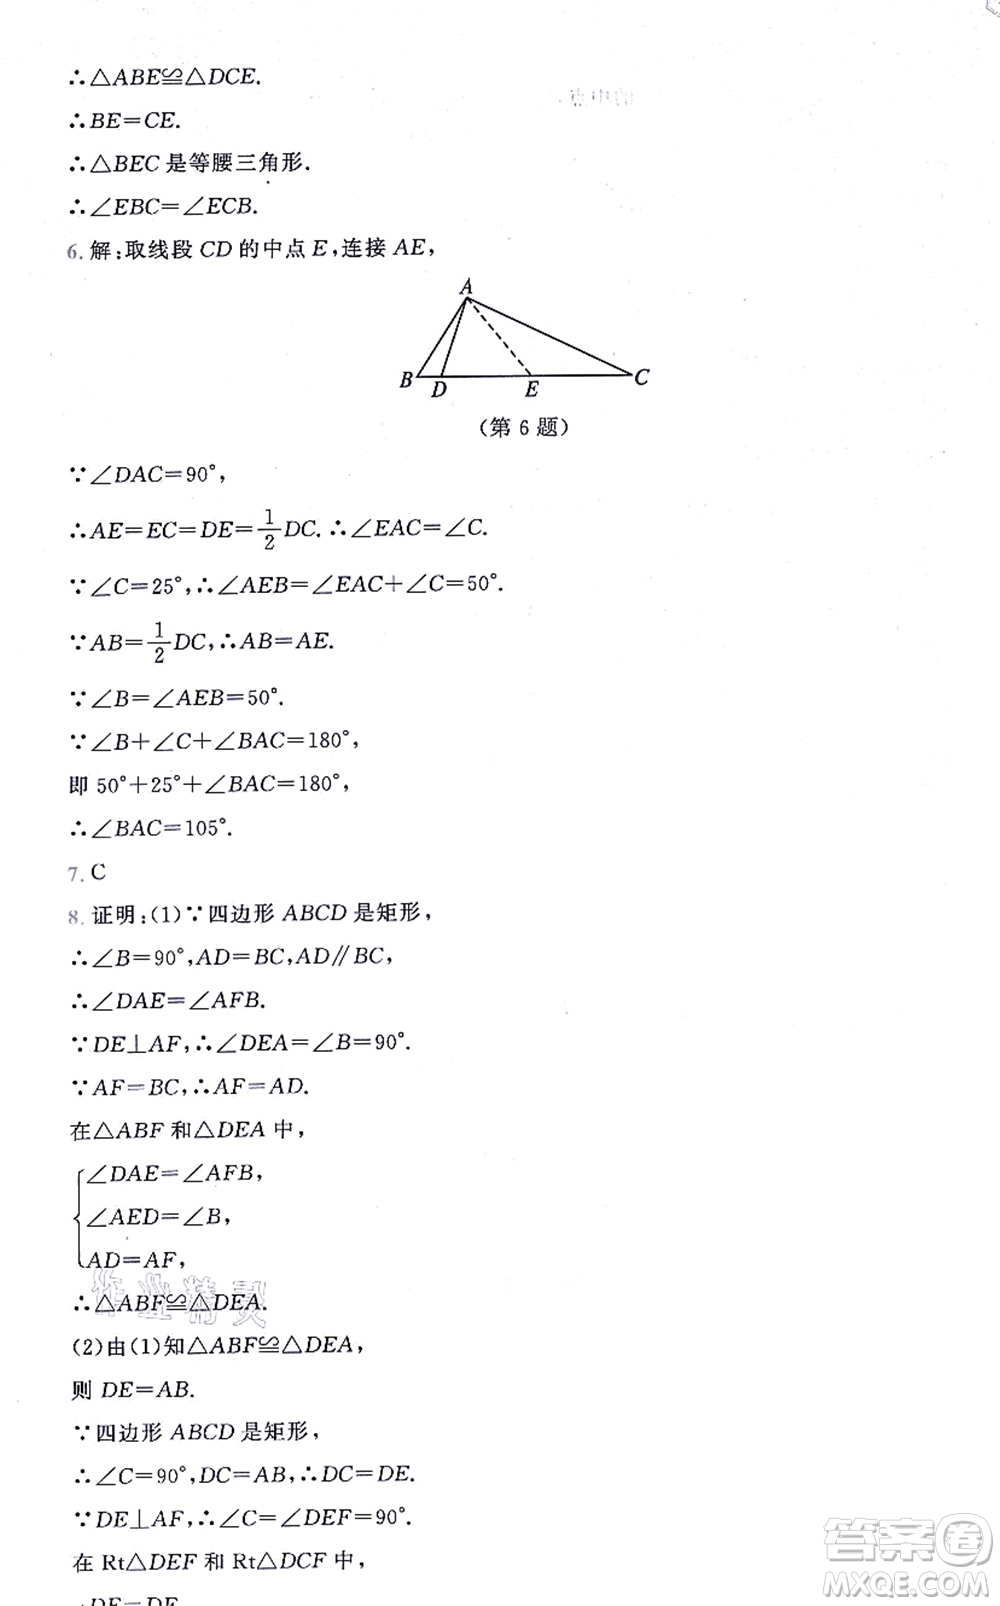 ∴△ABE≌△DCE.
∴BE=CE.
∴△BEC 是等腰三角形.
∴∠EBC=∠ECB.
6. 解:取线段 CD 的中点 E,连接 AE,
A
B D E C
(第 6 题)
∵∠DAC=90°,
∴AE=EC=DE=1/2DC. ∴∠EAC=∠C.
∵∠C=25°,∴∠AEB=∠EAC+∠C=50°.
∵AB=1/2DC,∴AB=AE.
∵∠B=∠AEB=50°.
∵∠B+∠C+∠BAC=180°,
即 50°+25°+∠BAC=180°,
∴∠BAC=105°.
7. C
8. 证明:(1)∵四边形 ABCD 是矩形,
∴∠B=90°,AD=BC,AD∥BC,
∴∠DAE=∠AFB.
∵DE⊥AF,∴∠DEA=∠B=90°.
∵AF=BC,∴AF=AD.
在△ABF 和△DEA 中,
∠DAE=∠AFB,
∠AED=∠B,
AD=AF,
作业精灵
∴△ABF≌△DEA.
(2)由(1)知△ABF≌△DEA,
则 DE=AB.
∵四边形 ABCD 是矩形,
∴∠C=90°,DC=AB,∴DC=DE.
∵DE⊥AF,∴∠C=∠DEF=90°.
在 Rt△DEF 和 Rt△DCF 中,
答案卷
MXQE.COM